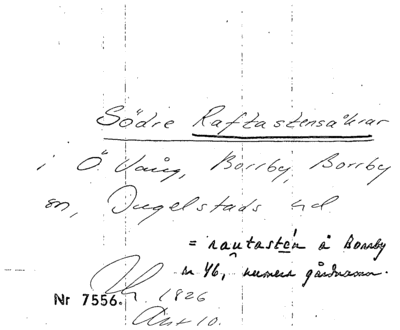 Södre Raftastensåkrar
i Ö. Vång, Borrby, Borrby
sn, Ingelstads hd
= rautastén å Borrby
n 46, numera gårdsnamn.
Nr 7556. 1826
Akt 10.